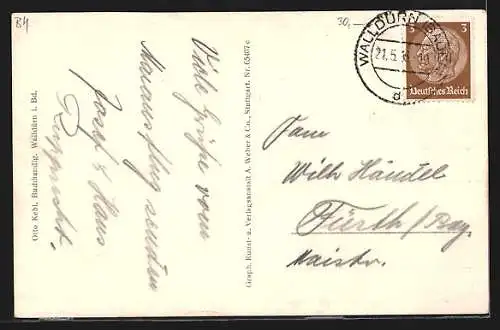 B4
30,-
WALLDÜRN (BADEN)
21.5.
d
3 3
Deutsches Reich
Viele Grüße vom
Maiausflug senden
Josef & Hans
Otto Kehl, Buchhandlg. Walldürn i. Bd.
Graph. Kunst- u. Verlagsanstalt A. Weber & Co., Stuttgart. Nr. 65407c
Fam
Wilh Händel
Fürth/Bay.
Maistr.